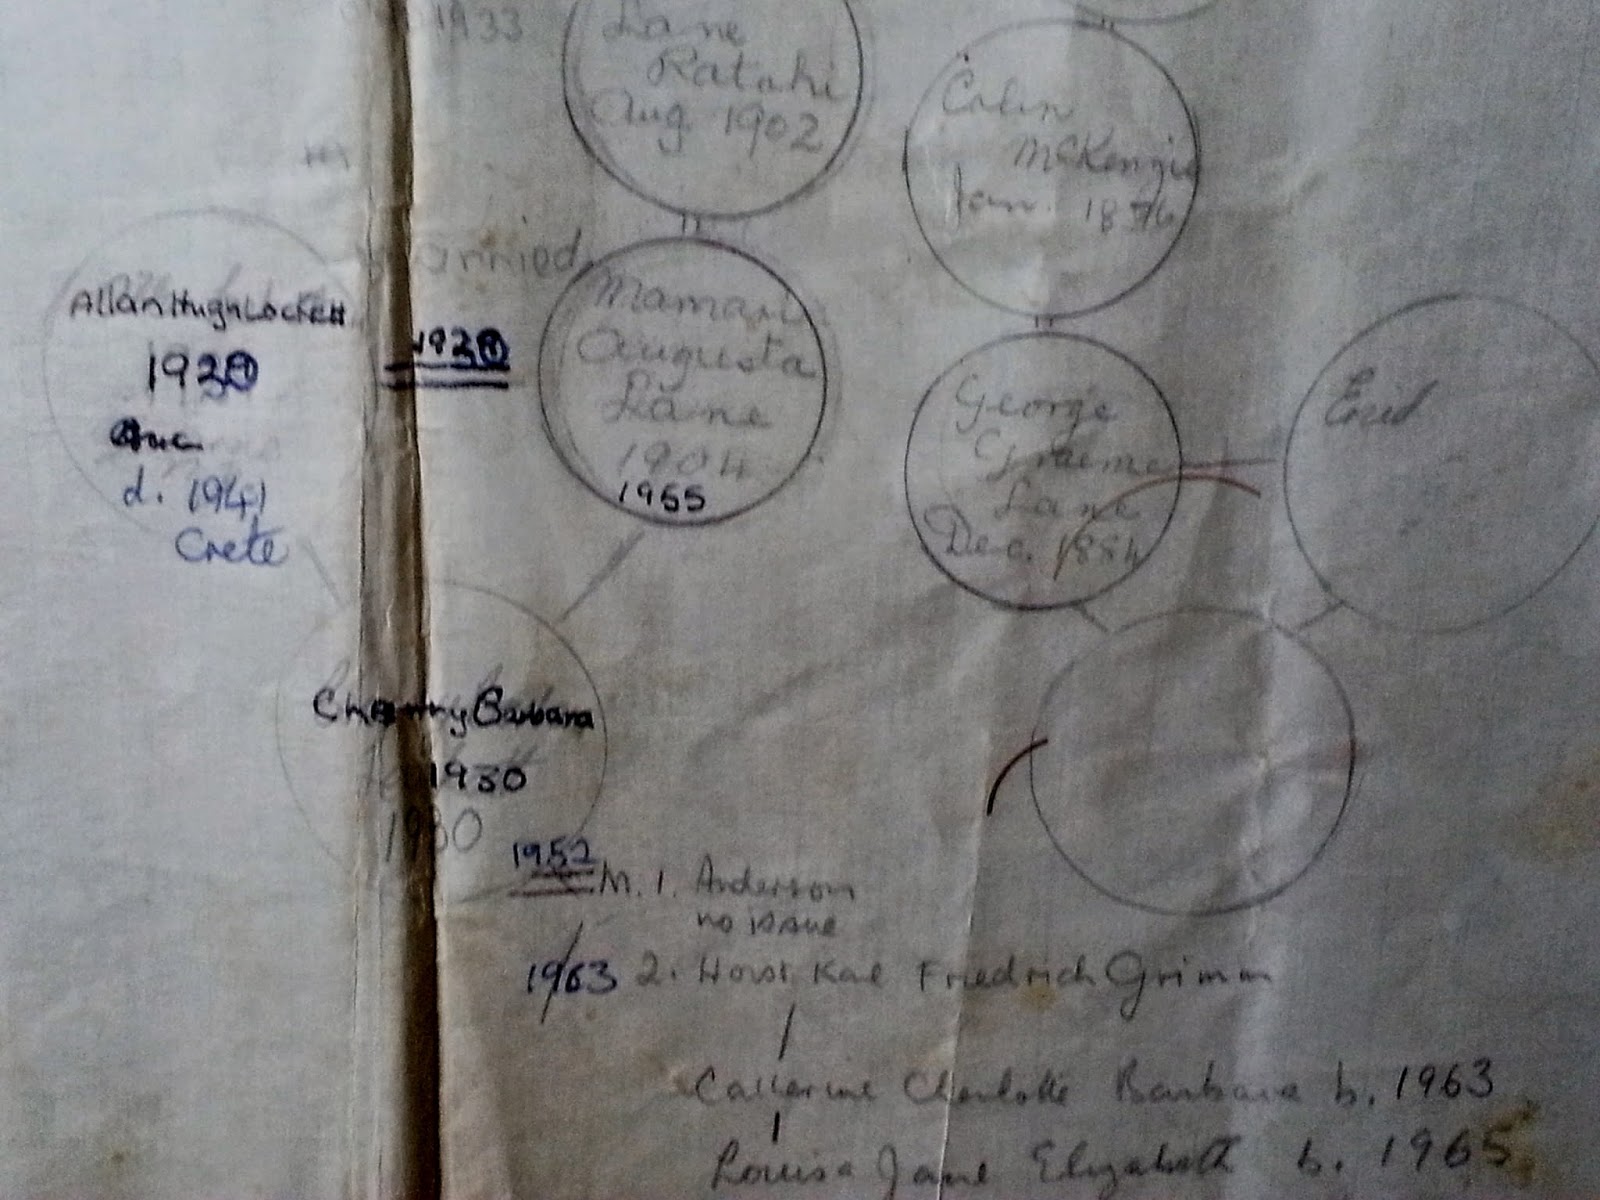 1933
Lane
Ratahi
Aug 1902
Colin
McKenzie
Jan.
married
Allan Hugh Lockett
d. 1941
Crete
Augusta
Lane
1904
1955
George
Graeme
Lane
Dec. 1884
Enid
Barbara
1930
1930
1952
M. 1. Anderson
no issue
1963 2. Horst Karl Friedrich Grimm
Catherine Charlotte Barbara b. 1963
Louisa Jane Elizabeth b. 1965